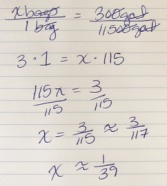 x bags / 1 bag = 300 gal / 11500 gal
3 · 1 = x · 115
115x / 115 = 3 / 115
x = 3/115 ≈ 3/117
x ≈ 1/39